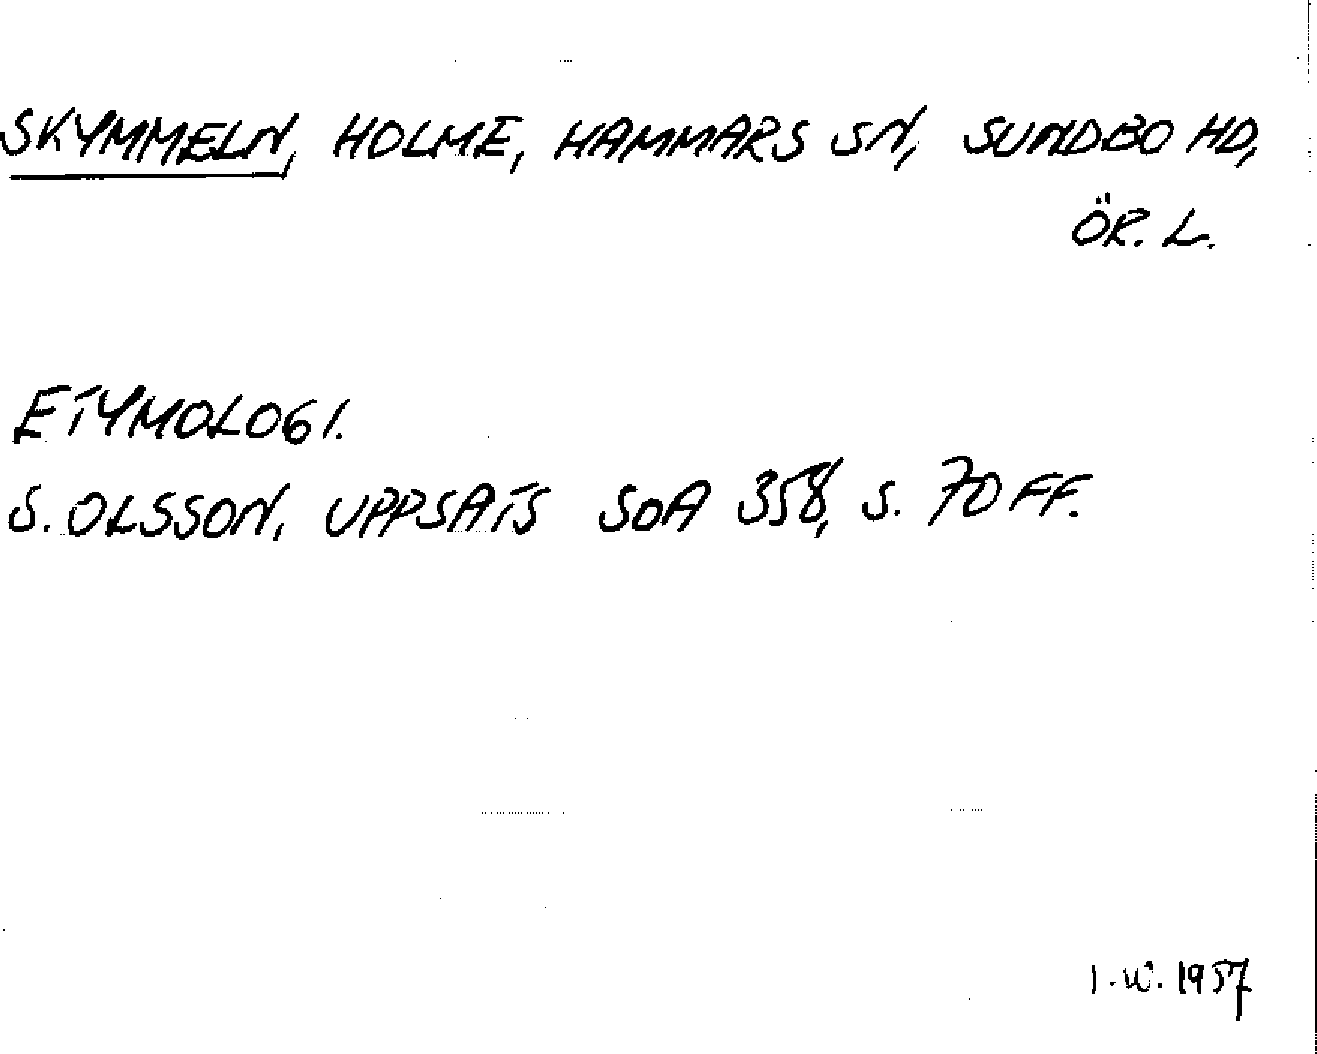 SKYMMELN, HOLME, HAMMARS SN, SUNDBO HD,
ÖR. L.
ETYMOLOGI.
S. OLSSON, UPPSATS SOA 358, S. 70 FF.
I.W. 1957